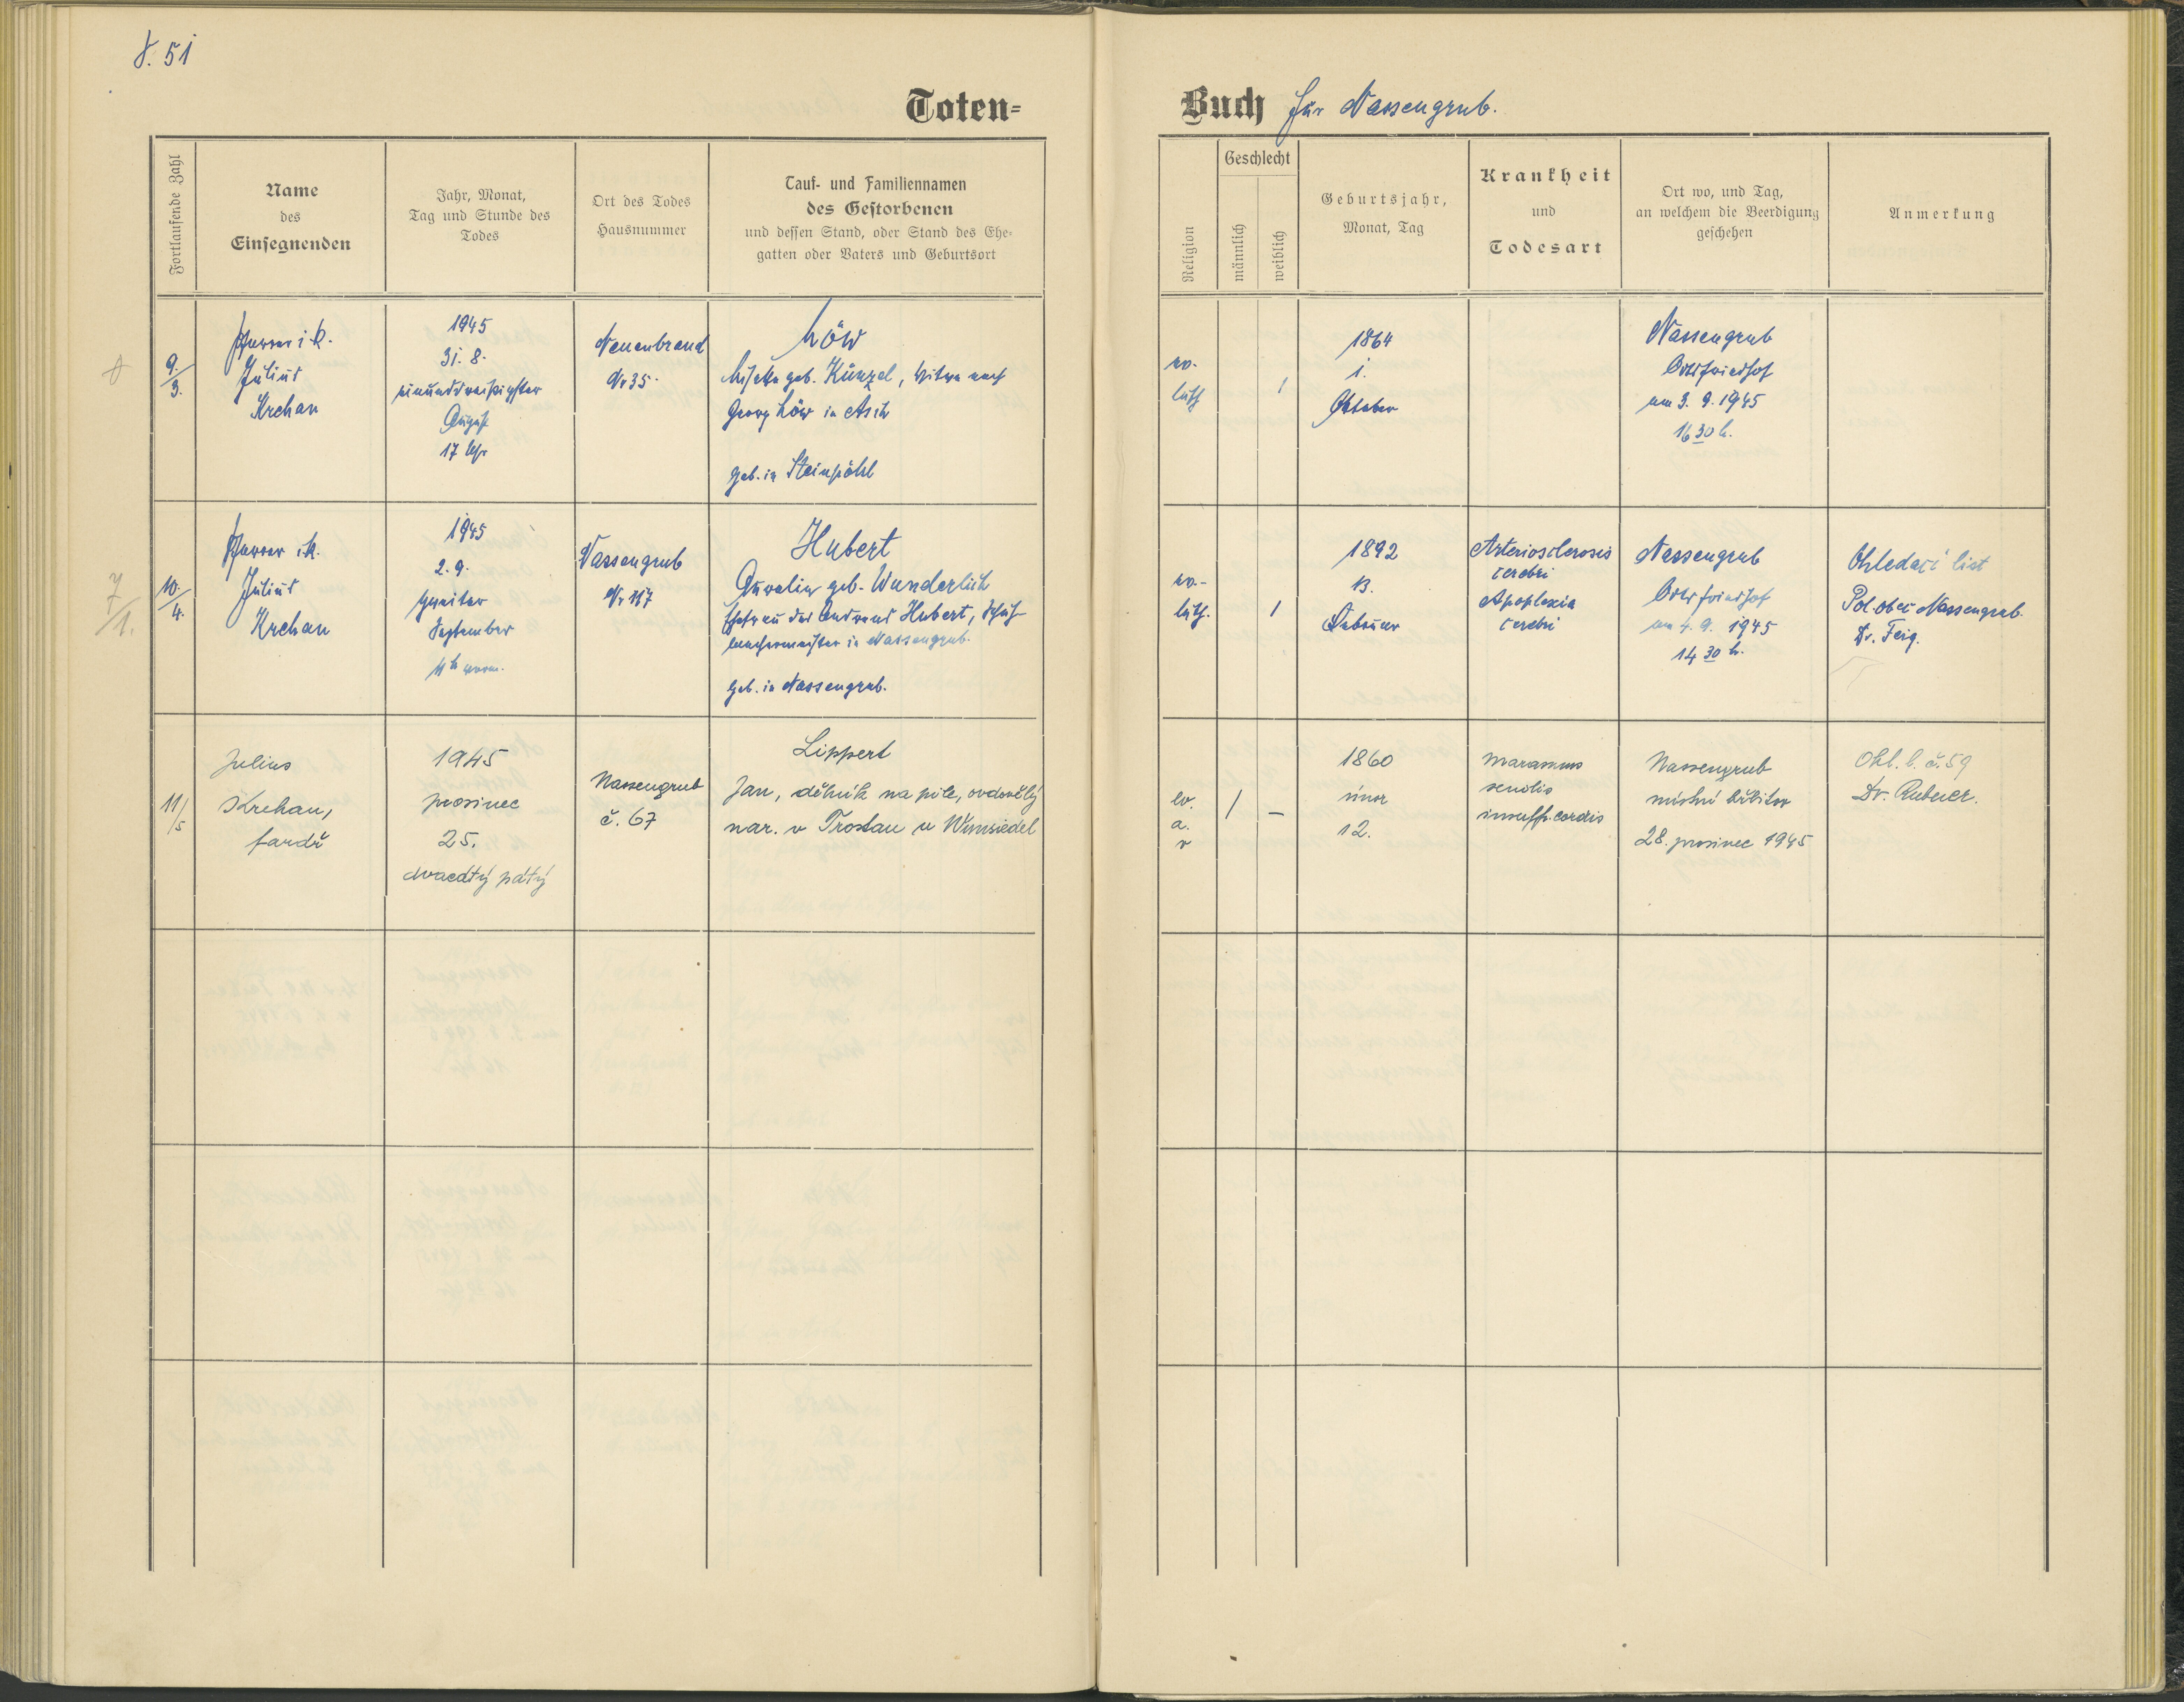 F. 51
Toten-
Buch für Nassengrub.
Fortlaufende Zahl
Name
des
Einsegnenden
Jahr, Monat,
Tag und Stunde des
Todes
Ort des Todes
Hausnummer
Tauf- und Familiennamen
des Gestorbenen
und dessen Stand, oder Stand des Ehe-
gatten oder Vaters und Geburtsort
Religion
Geschlecht
männlich
weiblich
Geburtsjahr,
Monat, Tag
Krankheit
und
Todesart
Ort wo, und Tag,
an welchem die Beerdigung
geschehen
Anmerkung
9./3.
Pfarrer i. R.
Julius
Krehan
1945
31. 8.
einunddreißigster
August
17 Uhr
Neuenbrand
Nr 35.
Löw
geb. Künzel, Witwe nach
Georg Löw in Asch
geb. in Steinpöhl
ev.
luth
1
1864
1.
Oktober
Nassengrub
Ortsfriedhof
am 3. 9. 1945
16 30 h.
7/1.
10./4.
Pfarrer i. R.
Julius
Krehan
1945
2. 9.
Zweiter
September
11 h vorm.
Nassengrub
Nr 117
Hubert
geb. Wunderlich
Ehefrau des Andreas Hubert, Schuh-
machermeister in Nassengrub.
geb. in Nassengrub.
ev.-
luth.
1
1892
13.
Februar
Arteriosclerosis
cerebri
Apoplexia
cerebri
Nassengrub
Ortsfriedhof
am 4. 9. 1945
14 30 h.
Ohledací list
Pol. obec Nassengrub.
Dr. Feig.
11/5
Julius
Krehan,
farář
1945
prosinec
25.
dvacátý pátý
Nassengrub
č. 67
Lippert
Jan, dělník na pile, ovdovělý
nar. v Trostau u Wunsiedel
ev.
a.
v
/ —
1860
únor
12.
marasmus
senilis
insuff. cordis
Nassengrub
místní hřbitov
28. prosinec 1945
Ohl. l. č. 59
Dr.